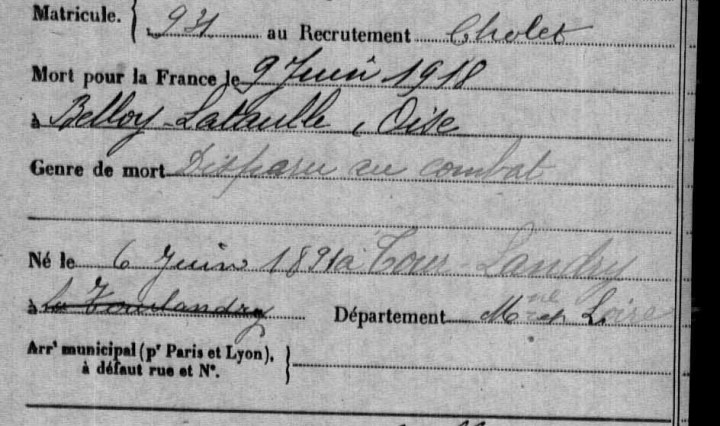 Matricule. { 931 au Recrutement Cholet
Mort pour la France le 9 Juin 1918
à Belloy-Lataulle, Oise
Genre de mort Disparu au combat
Né le 6 Juin 1891 à Tour-Landry
à La Tourlandry Département Mne et Loire
Arrt municipal (pr Paris et Lyon), }
à défaut rue et N°.